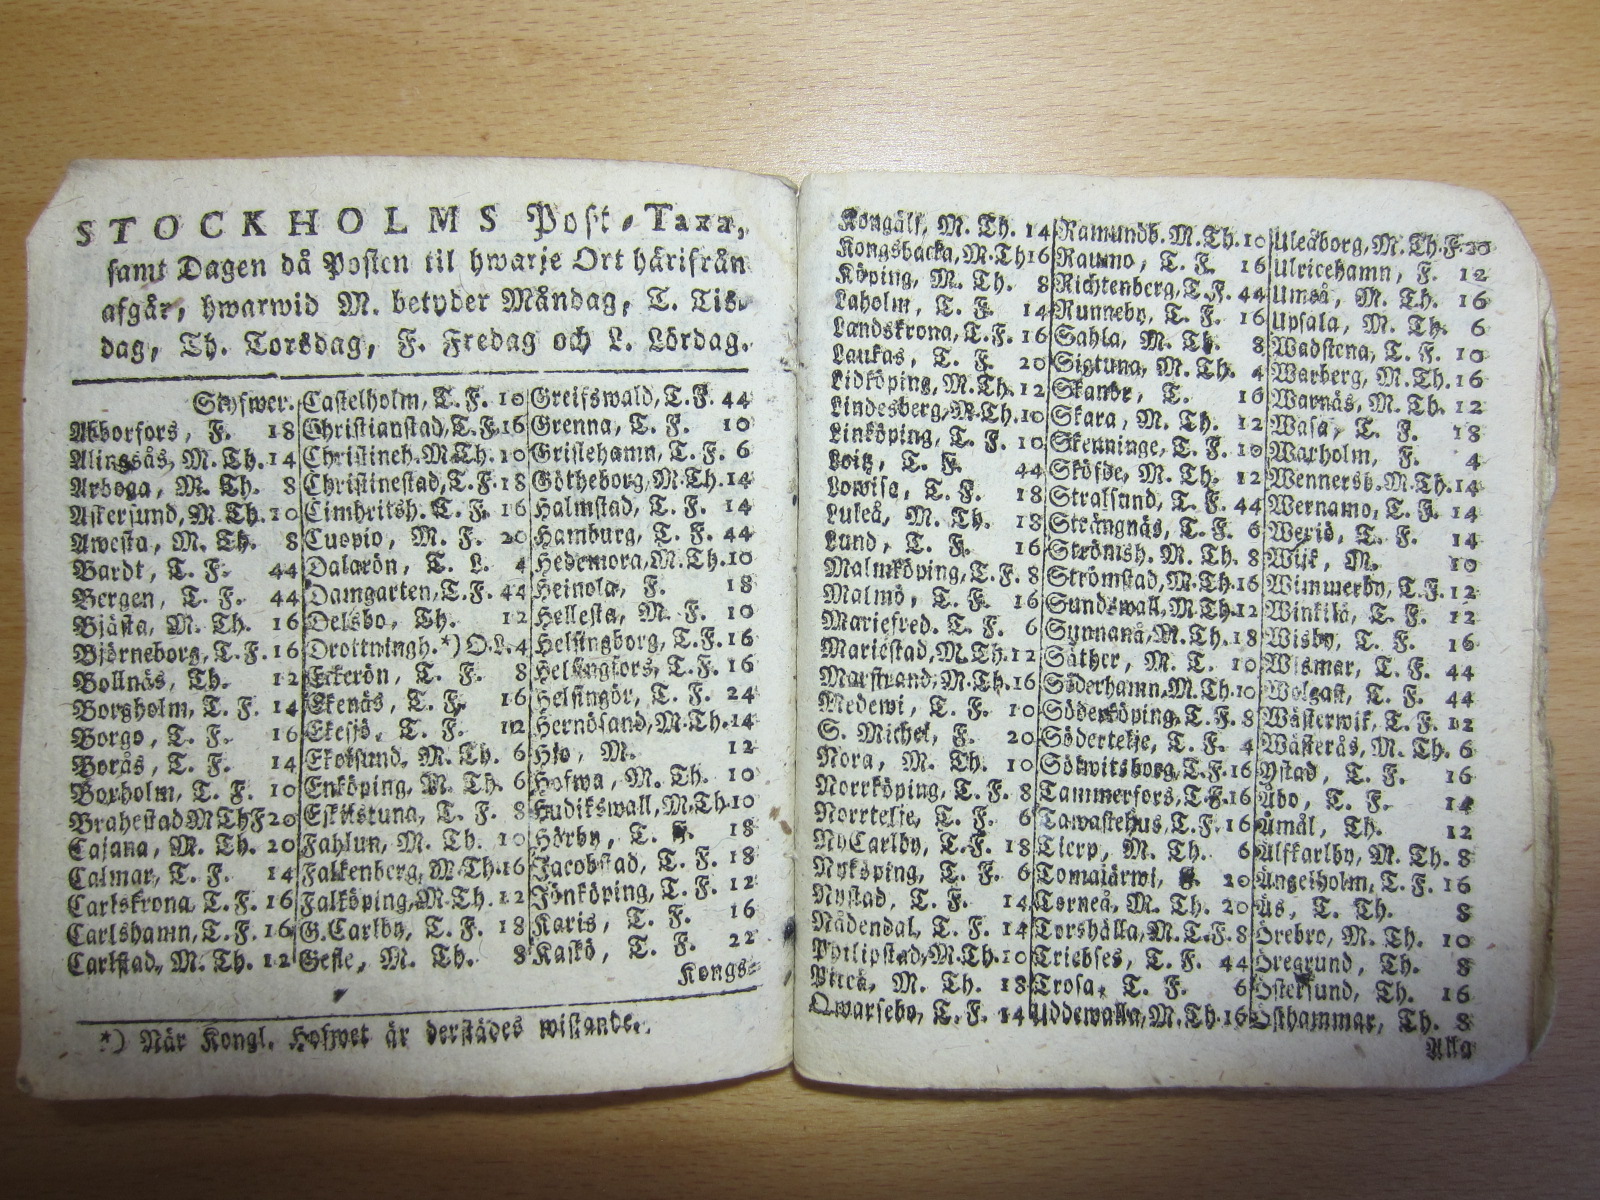 STOCKHOLMS Post-Taxa,
samt Dagen då Posten til hwarje Ort härifrån
afgår, hwarwid M. betyder Måndag, T. Tis-
dag, Th. Torsdag, F. Fredag och L. Lördag.
Styfwer.
Abborfors, F. 18
Alingsås, M. Th. 14
Arboga, M. Th. 8
Askersund, M. Th. 10
Awesta, M. Th. 8
Bardt, T. F. 44
Bergen, T. F. 44
Bjästa, M. Th. 16
Björneborg, T. F. 16
Bollnäs, Th. 12
Borgholm, T. F. 14
Borgo, T. F. 16
Borås, T. F. 14
Boxholm, T. F. 10
Brahestad M Th F 20
Cajana, M. Th. 20
Calmar, T. F. 14
Carlskrona T. F. 16
Carlshamn, T. F. 16
Carlstad, M. Th. 12
Castelholm, T. F. 10
Christianstad, T. F. 16
Christineh. M. Th. 10
Christinestad, T. F. 18
Cimbritsh. T. F. 16
Cuopio, M. F. 20
Dalarön, T. L. 4
Damgarten, T. F. 44
Delsbo, Th. 12
Drottningh. *) O. L. 4
Eckerön, T. F. 8
Ekenäs, T. F. 16
Ekesjö, T. F. 12
Ekolsund, M. Th. 6
Enköping, M. Th. 6
Eskilstuna, T. F. 8
Fahlun, M. Th. 10
Falkenberg, M. Th. 16
Falköping, M. Th. 12
G. Carlby, T. F. 18
Gefle, M. Th. 8
Greifswald, T. F. 44
Grenna, T. F. 10
Grislehamn, T. F. 6
Götheborg, M. Th. 14
Halmstad, T. F. 14
Hamburg, T. F. 44
Hedemora, M. Th. 10
Heinola, F. 18
Hellesta, M. F. 10
Helsingborg, T. F. 16
Helsingfors, T. F. 16
Helsingör, T. F. 24
Hernösand, M. Th. 14
Hjo, M. 12
Hofwa, M. Th. 10
Hudikswall, M. Th. 10
Hörby, T. F. 18
Jacobstad, T. F. 18
Jönköping, T. F. 12
Karis, T. F. 16
Kaskö, T. F. 22
Kongs-
*) När Kongl. Hofwet är derstädes wistande.
Kongälf, M. Th. 14
Kongsbacka, M. Th 16
Köping, M. Th. 8
Laholm, T. F. 14
Landskrona, T. F. 16
Laukas, T. F. 20
Lidköping, M. Th. 12
Lindesberg, M. Th. 10
Linköping, T. F. 10
Loitz, T. F. 44
Lowisa, T. F. 18
Luleå, M. Th. 18
Lund, T. F. 16
Malmköping, T. F. 8
Malmö, T. F. 16
Mariefred. T. F. 6
Mariestad, M. Th. 12
Marstrand, M. Th. 16
Medewi, T. F. 10
S. Michel, F. 20
Nora, M. Th. 10
Norrköping, T. F. 8
Norrtelje, T. F. 6
NyCarlby, T. F. 18
Nyköping, T. F. 6
Nystad, T. F. 14
Nådendal, T. F. 14
Philipstad, M. Th. 10
Piteå, M. Th. 18
Qwarsebo, T. F. 14
Ramundb. M. Th. 10
Raumo, T. F. 16
Richtenberg, T. F. 44
Runneby, T. F. 16
Sahla, M. Th. 8
Sigtuna, M. Th. 4
Skanör, T. 16
Skara, M. Th. 12
Skenninge, T. F. 10
Sköfde, M. Th. 12
Stralsund, T. F. 44
Strängnäs, T. F. 6
Strömsh. M. Th. 8
Strömstad, M. Th. 16
Sundswall, M. Th. 12
Sunnanå, M. Th. 18
Säther, M. T. 10
Söderhamn, M. Th. 10
Söderköping, T. F. 8
Södertelje, T. F. 4
Sölwitsborg, T. F. 16
Tammerfors, T. F. 16
Tawastehus, T. F. 16
Tierp, M. Th. 6
Tomajärwi, 20
Torneå, M. Th. 20
Torshälla, M. T. F. 8
Triebses, T. F. 44
Trosa, T. F. 6
Uddewalla, M. Th. 16
Uleåborg, M. Th. F. 20
Ulricehamn, F. 12
Umeå, M. Th. 16
Upsala, M. Th. 6
Wadstena, T. F. 10
Warberg, M. Th. 16
Warnäs, M. Th. 12
Wasa, T. F. 18
Waxholm, F. 4
Wennersb. M. Th. 14
Wernamo, T. F. 14
Wexiö, T. F. 14
Wijk, M. 10
Wimmerby, T. F. 12
Winkilä, T. F. 12
Wisby, T. F. 16
Wismar, T. F. 44
Wolgast, T. F. 44
Wästerwik, T. F. 12
Wästerås, M. Th. 6
Ystad, T. F. 16
Åbo, T. F. 14
Åmål, Th. 12
Älfkarlby, M. Th. 8
Ängelholm, T. F. 16
Ås, T. Th. 8
Örebro, M. Th. 10
Öregrund, Th. 8
Östersund, Th. 16
Östhammar, Th. 8
Alla